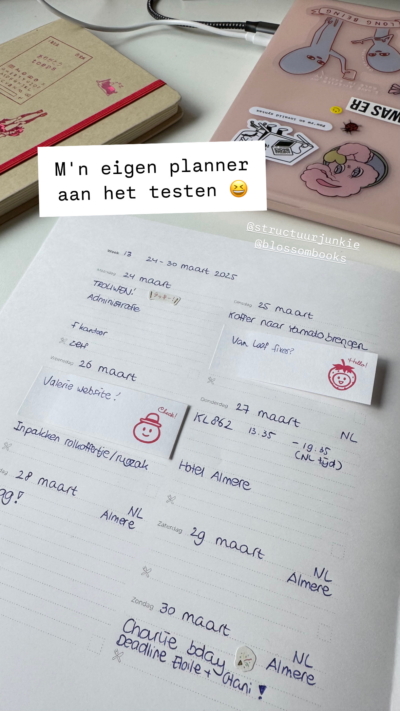 M'n eigen planner
aan het testen 😆
@structuurjunkie
@blossombooks
WAS ER
13 24-30 maart 2025
24 maart
TROUWEN!
Administratie
kantoor
25 maart
Koffer naar Yamato brengen
Van Loef fixer?
Hello!
26 maart
Valerie website!
Check!
Inpakken rolkoffertje/rugzak
Donderdag 27 maart NL
KL862 13.35 - 19.35
(NL tijd)
Hotel Almere
28 maart
NL
Almere
Zaterdag 29 maart
NL
Almere
Zondag 30 maart
NL
Charlie bday Almere
Deadline